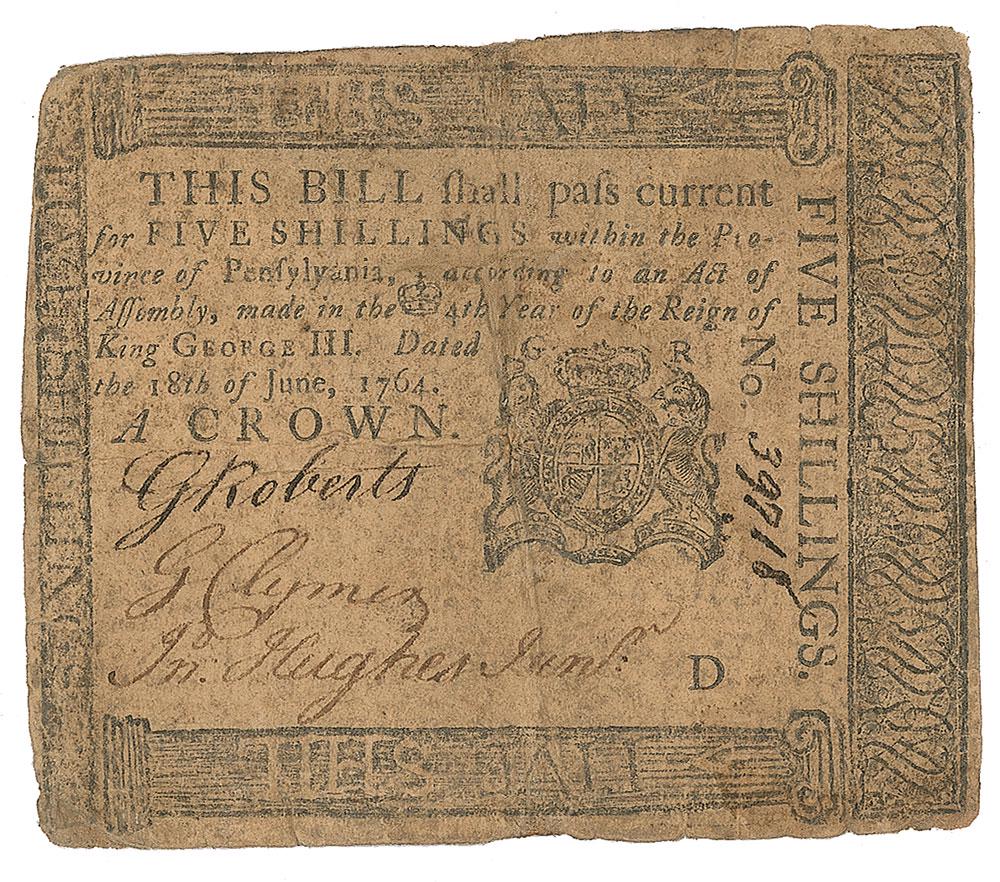 THIS BILL ſhall paſs current
for FIVE SHILLINGS within the Pro-
vince of Penſylvania, according to an Act of
Aſſembly, made in the 4th Year of the Reign of
King GEORGE III. Dated
the 18th of June, 1764.
A CROWN.
G R
G Roberts
G Clymer
Jn. Hughes Junr.
D
No. 39718
FIVE SHILLINGS.